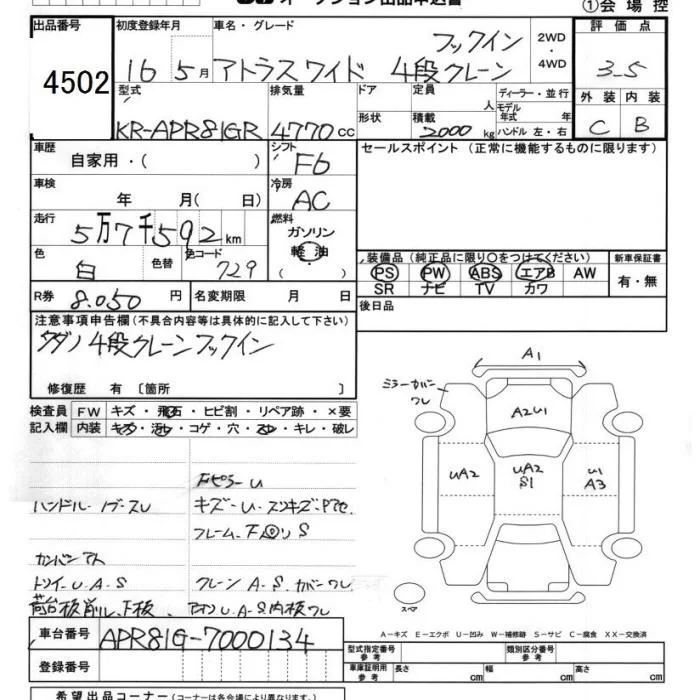 オークション出品申込書 ①会場控
出品番号 初度登録年月 車名・グレード 評価点
フックイン 2WD
4502 16 5月 アトラスワイド 4段クレーン ・4WD 3-5
型式 排気量 ドア 定員 人 ディーラー・並行 外装 内装
KR-APR81GR 4770cc 形状 積載 2000kg モデル年式 年 ハンドル 左・右 C B
車歴 シフト セールスポイント (正常に機能するものに限ります)
自家用・( ) F6
車検 冷房
年 月( 日) AC
走行 燃料
5万7千592km ガソリン
色 色替 色コード 軽油
白 729 ・( ) 装備品 (純正品に限り○をつけてください) 新車保証書
PS PW ABS エアB AW 有・無
R券 8.050円 名変期限 月 日 SR ナビ TV カワ
注意事項申告欄 (不具合内容等は具体的に記入して下さい) 後日品
タダノ4段クレーンフックイン
修復歴 有 〔箇所 〕
A1
検査員 FW キズ・飛石・ヒビ割・リペア跡・×要 ミラーカバーワレ
記入欄 内装 キズ・汚レ・コゲ・穴・スレ・キレ・破レ A2U1
FピラーU
UA2 UA2 S1 U1 A3
ハンドル・ノブ・スレ キズ-U-スリキズ
フレーム、
S
U.A.S クレーン A.S.カバーワレ
荷台板削レ、下板、 U.A.S内板ワレ スペア
A-キズ E-エクボ U-凹み W-補修跡 S-サビ C-腐食 XX-交換済
車台番号 APR81G-7000134 型式指定番号 参考 類別区分番号 参考
登録番号 車庫証明用 参考 長さ cm 幅 cm 高さ cm
希望出品コーナー (コーナーは各会場により異なります)